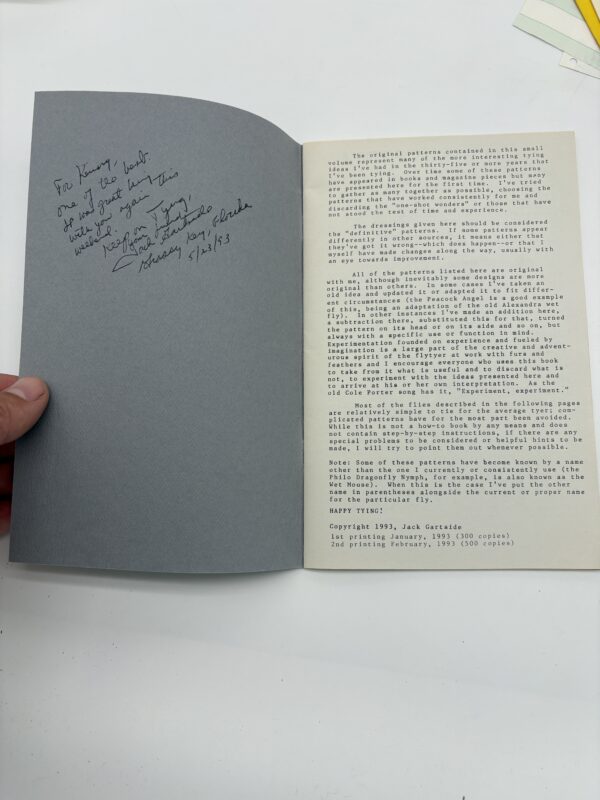 For Kenny,
one of the best.
It was great being
with you again this
weekend.
Keep on Tying!
Your friend
Jack Gartside
Casey Key, Florida
5/23/93
The original patterns contained in this small
volume represent many of the more interesting tying
ideas I've had in the thirty-five or more years that
I've been tying. Over time some of these patterns
have appeared in books and magazine pieces but many
are presented here for the first time. I've tried
to gather as many together as possible, choosing the
patterns that have worked consistently for me and
discarding the "one-shot wonders" or those that have
not stood the test of time and experience.
The dressings given here should be considered
the "definitive" patterns. If some patterns appear
differently in other sources, it means either that
they've got it wrong--which does happen--or that I
myself have made changes along the way, usually with
an eye towards improvement.
All of the patterns listed here are original
with me, although inevitably some designs are more
original than others. In some cases I've taken an
old idea and updated it or adapted it to fit differ-
ent circumstances (the Peacock Angel is a good example
of this, being an adaptation of the old Alexandra wet
fly). In other instances I've made an addition here,
a subtraction there, substituted this for that, turned
the pattern on its head or on its side and so on, but
always with a specific use or function in mind.
Experimentation founded on experience and fueled by
imagination is a large part of the creative and advent-
urous spirit of the flytyer at work with furs and
feathers and I encourage everyone who uses this book
to take from it what is useful and to discard what is
not, to experiment with the ideas presented here and
to arrive at his or her own interpretation. As the
old Cole Porter song has it, "Experiment, experiment."
Most of the flies described in the following pages
are relatively simple to tie for the average tyer; com-
plicated patterns have for the most part been avoided.
While this is not a how-to book by any means and does
not contain step-by-step instructions, if there are any
special problems to be considered or helpful hints to be
made, I will try to point them out whenever possible.
Note: Some of these patterns have become known by a name
other than the one I currently or consistently use (the
Philo Dragonfly Nymph, for example, is also known as the
Wet Mouse). When this is the case I've put the other
name in parentheses alongside the current or proper name
for the particular fly.
HAPPY TYING!
Copyright 1993, Jack Gartside
1st printing January, 1993 (300 copies)
2nd printing February, 1993 (500 copies)